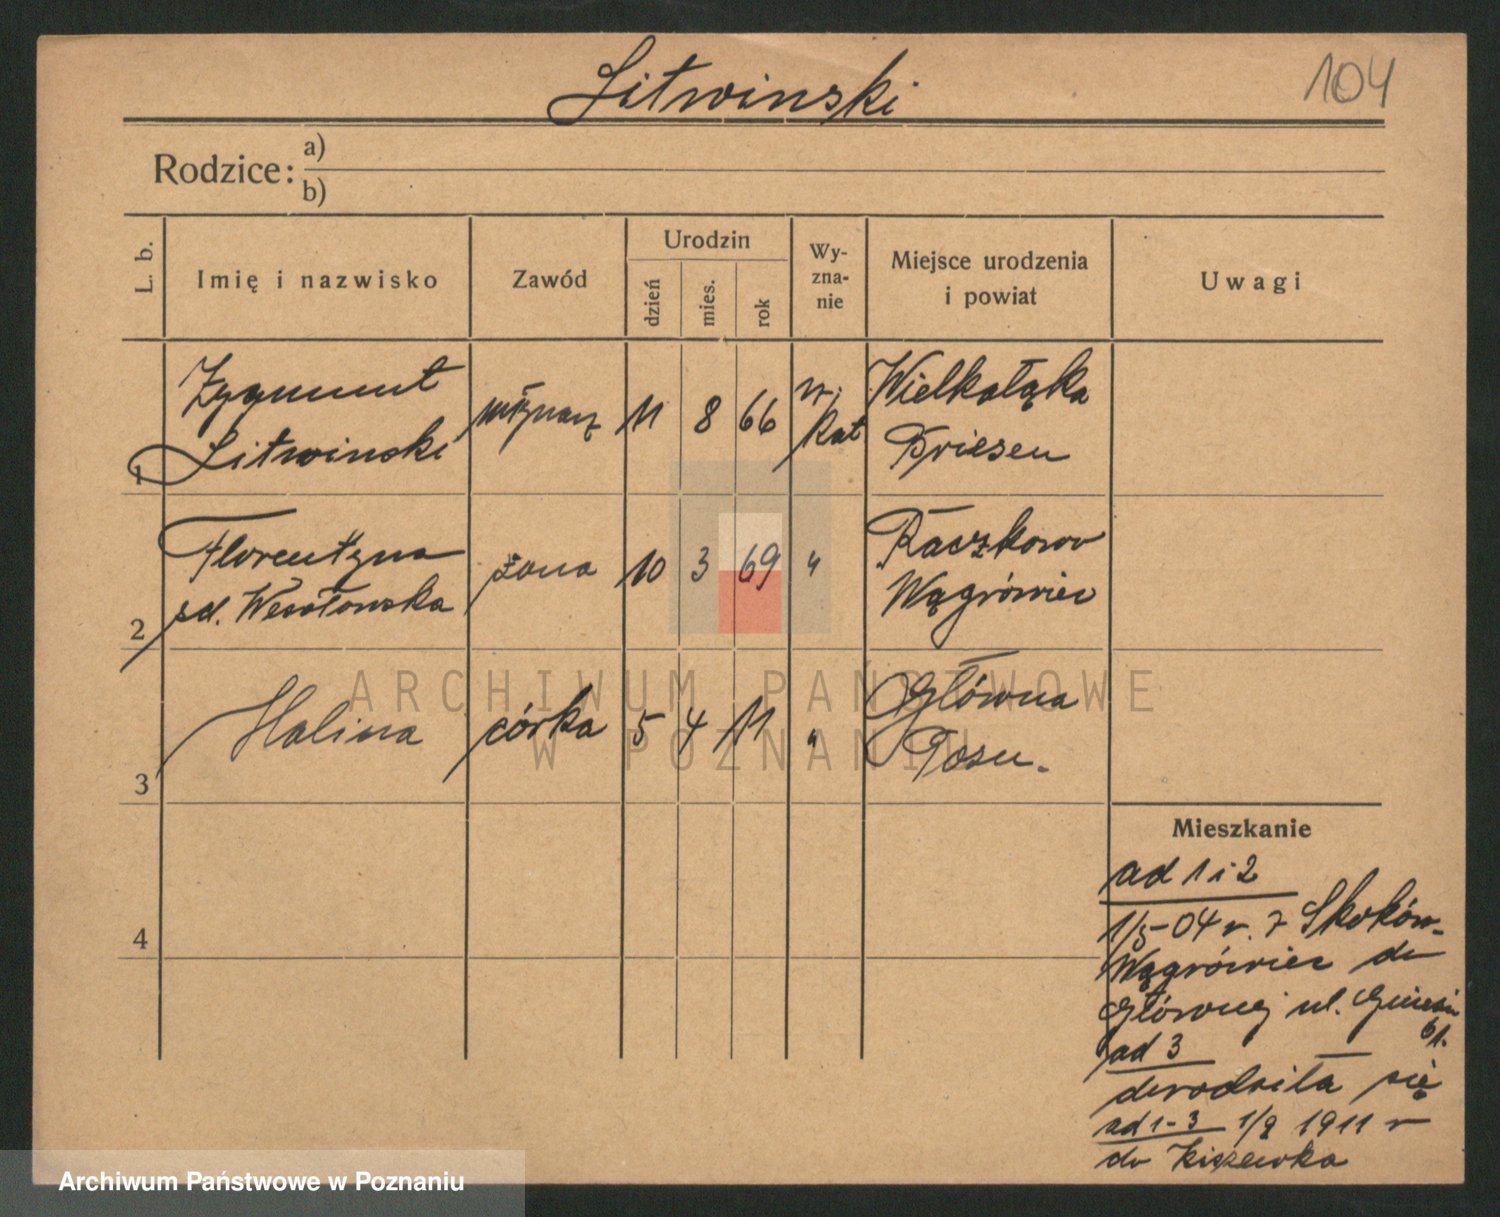 Litwinski
104
Rodzice: a)
b)
L. b.
Imię i nazwisko
Zawód
Urodzin
dzień
mies.
rok
Wy-
zna-
nie
Miejsce urodzenia
i powiat
Uwagi
1
Zygmunt
Litwinski
młynarz
11
8
66
rz.
kat
Wielkałąka
Briesen
2
Florentyna
sd. Wesołowska
żona
10
3
69
"
Raczkowo
Wągrówiec
3
Halina
córka
5
4
11
"
Główna
Posn.
4
Mieszkanie
ad 1 i 2
1/5-04 r. z Skoków-
Wągrówiec do
Głównej ul. Gnieźn
61.
ad 3
dorodziła się
ad 1-3 1/9 1911 r
do
ARCHIWUM PAŃSTWOWE
W POZNANIU
Archiwum Państwowe w Poznaniu